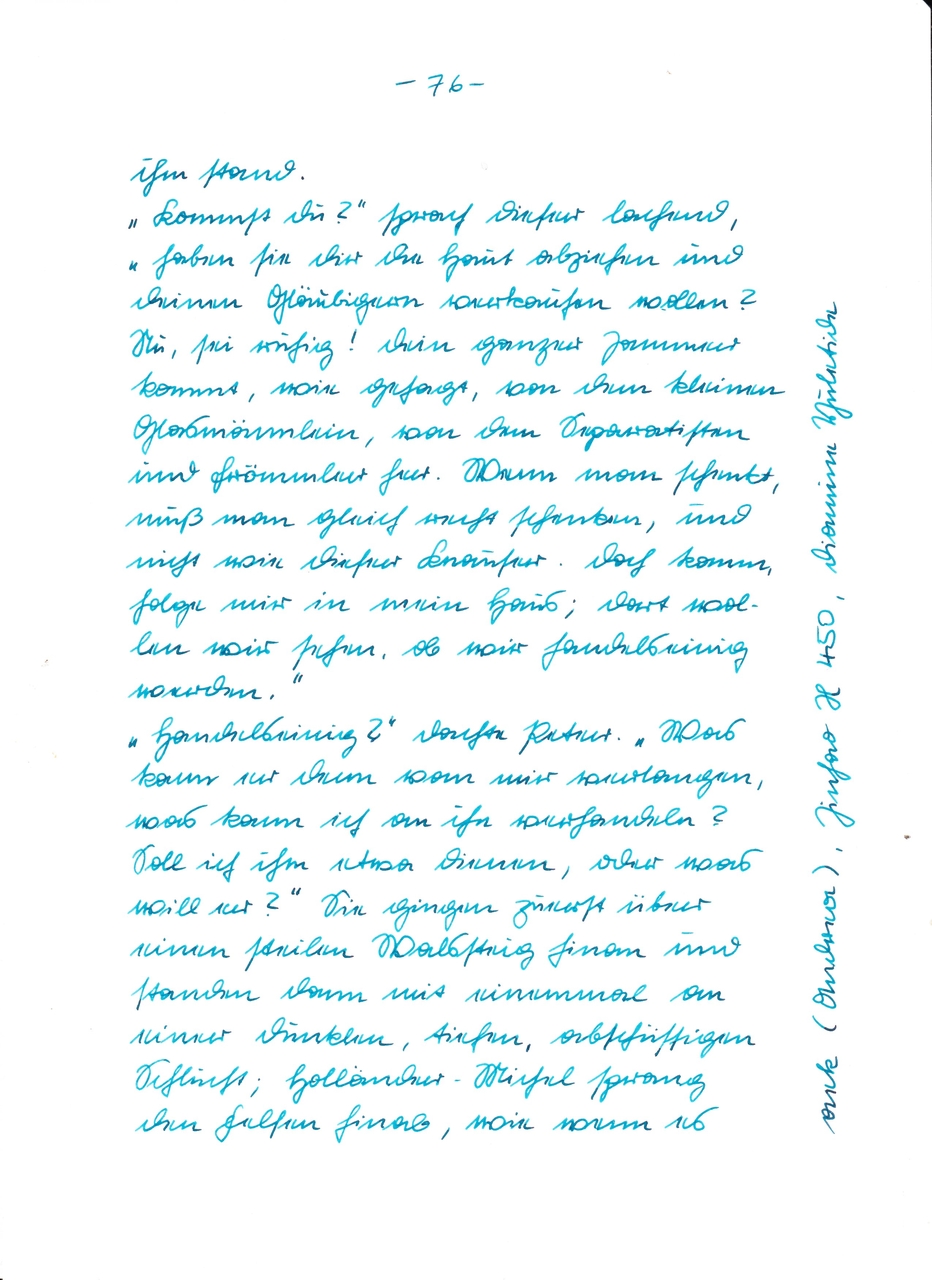 - 76 -
ihm stand.
„Kommst du?“ sprach dieser lachend,
„haben sie dir die Haut abziehen und
deinen Gläubigern verkaufen wollen?
Nu, sei ruhig! dein ganzer Jammer
kommt, wie gesagt, von dem kleinen
Glasmännlein, von dem Separatisten
und Frömmler her. Wenn man schenkt,
muß man gleich recht schenken, und
nicht wie dieser Knauser. Doch komm,
folge mir in mein Haus; dort wol-
len wir sehen, ob wir handelseinig
werden.“
„Handelseinig?“ dachte Peter. „Was
kann er denn von mir verlangen,
was kann ich an ihn verhandeln?
Soll ich ihm etwa dienen, oder was
will er?“ Sie gingen zuerst über
einen steilen Waldsteig hinan und
standen dann mit einemmal an
einer dunklen, tiefen, abschüssigen
Schlucht; Holländer-Michel sprang
den Felsen hinab, wie wenn es
Jinhao X 450, diamine